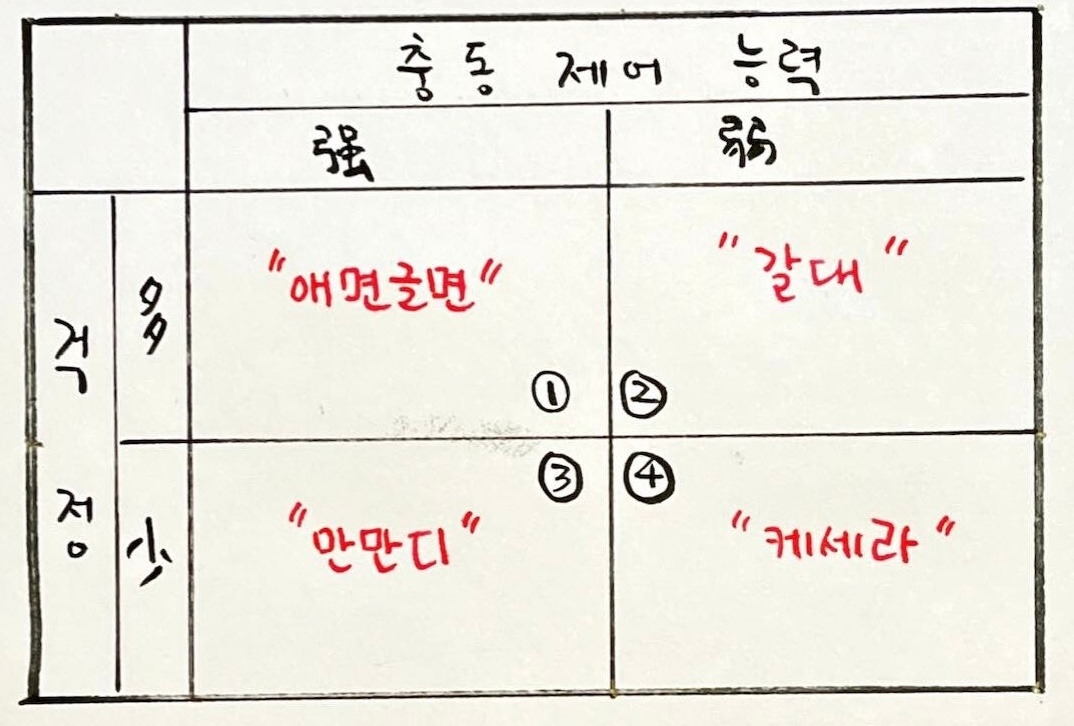 충동 제어 능력
强 弱
걱정
多
"애면글면" "갈대"
① ②
少
③ ④
"만만디" "케세라"